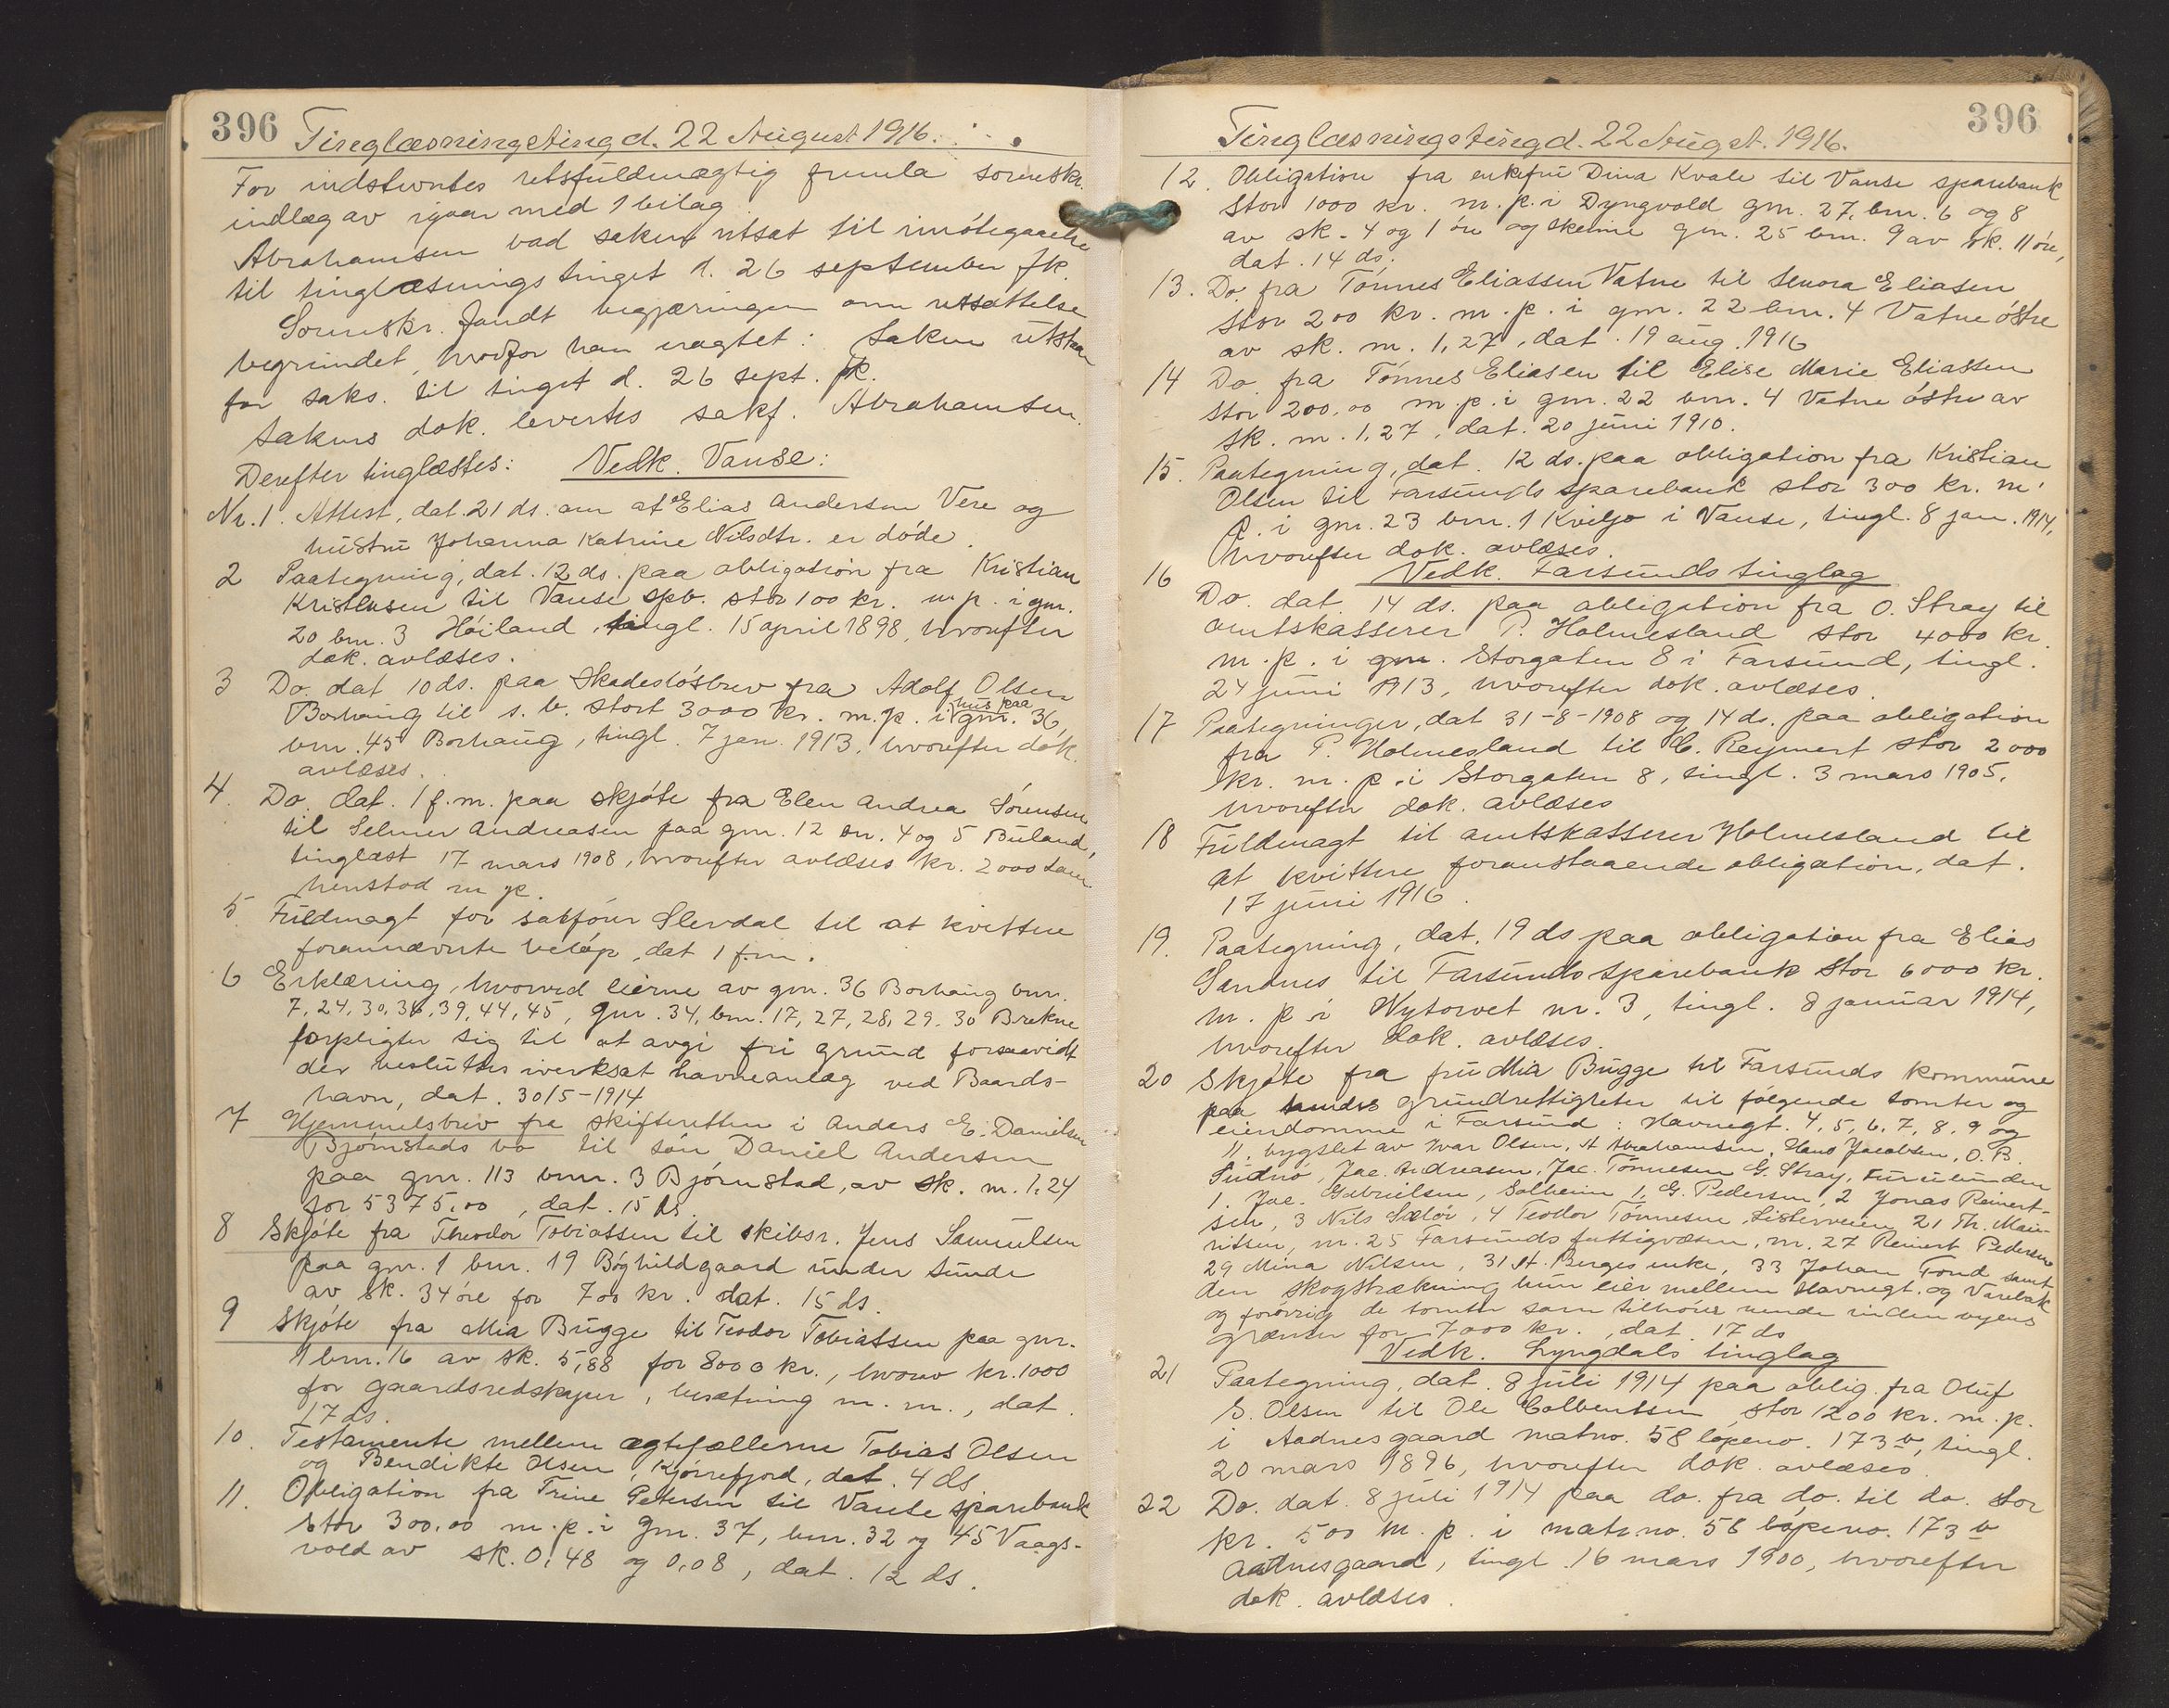 396
Tinglæsningsting d. 22 August 1916.
For indstevntes retsfuldmægtig fremla sorenskr.
indlæg av igaar med 1 bilag.
Abrahamsen bad saken utsat til imøtegaaelse
til tinglæsningstinget d. 26 september fk.
Sorenskr. fandt begjæringen om utsættelse
begrundet, hvorfor han eragtet: Saken utstaar
for saks. til tinget d. 26 sept. fk.
Sakens dok. levertes sakf. Abrahamsen.
Derefter tinglæstes: Vedk. Vanse:
Nr. 1. Attest, dat. 21 ds. om at Elias Andersen Vere og
hustru Johanna Katrine Nilsdtr. er døde.
2 Paategning, dat. 12 ds. paa obligation fra Kristian
Kristensen til Vanse spb. stor 100 kr. m. p. i gnr.
20 bnr. 3 Høiland, tingl. 15 april 1898, hvorefter
dok. avlæses.
3 Do. dat 10 ds. paa skadesløsbrev fra Adolf Olsen
Borhaug til s. b. stort 3000 kr. m. p. i hus paa gnr. 36,
bnr. 45 Borhaug, tingl. 7 jan. 1913, hvorefter dok.
avlæses.
4. Do. dat. 1 f. m. paa skjøte fra Elen Andrea Sørensen
til Selmer Andreasen paa gnr. 12 bnr. 4 og 5 Buland,
tinglæst 17 mars 1908, hvorefter avlæses kr. 2000 som
henstod m p.
5 Fuldmagt for sakfører Slevdal til at kvittere
forannævnte beløp, dat 1 f. m.
6 Erklæring, hvorved eierne av gnr. 36 Borhaug bnr.
7, 24, 30, 36, 39, 44, 45, gnr. 34, bnr. 17, 27, 28, 29. 30 Brekne
forpligter sig til at avgi fri grund forsaavidt
der besluttes iverksat havneanlæg ved Baards-
havn, dat. 30/5-1914
7 Hjemmelsbrev fra skifteretten i Anders E. Danielsen
Bjørnstads bo til søn Daniel Andersen
paa gnr. 113 bnr. 3 Bjørnstad, av sk. m. 1,24
for 5375,00, dat. 15 ds.
8 Skjøte fra Theodor Tobiassen til skibsr. Jens Samuelsen
paa gnr. 1 bnr. 19 Bøghildgaard under Sunde
av sk. 34 øre for 700 kr. dat. 15 ds.
9 Skjøte fra Mia Bugge til Teodor Tobiassen paa gnr.
1 bnr. 16 av sk. 5,88 for 8000 kr., hvorav kr. 1000
for gaardsredskaper, besætning m. m., dat.
17 ds.
10. Testamente mellem ægtefællerne Tobias Olsen
og Bendikte Olsen, Kjørrefjord, dat. 4 ds
11. Obligation fra Trine Petersen til Vanse sparebank
stor 300,00 m. p. i gnr. 37, bnr. 32 og 45 Vaags-
vold av sk. 0,48 og 0,08, dat. 12 ds.
396
Tinglæsningsting d. 22 August. 1916.
12. Obligation fra enkefru Dina Kvale til Vanse sparebank
stor 1000 kr. m. p. i Dyngvold gnr. 27, bnr. 6 og 8
av sk. 4 og 1 øre og Skeime gnr. 25 bnr. 9 av sk. 11 øre,
dat. 14 ds.
13. Do. fra Tønnes Eliassen Vatne til Senora Eliasen
stor 200 kr. m. p. i gnr. 22 bnr. 4 Vatne østre
av sk. m. 1,27, dat. 19 aug. 1916
14 Do fra Tønnes Eliasen til Elise Marie Eliassen
stor 200,00 m. p. i gnr. 22 bnr. 4 Vatne østre av
sk. m. 1,27, dat. 20 juni 1910.
15. Paategning, dat. 12 ds. paa obligation fra Kristian
Olsen til Farsunds sparebank stor 300 kr. m.
p. i gnr. 23 bnr. 1 Kviljo i Vanse, tingl. 8 jan. 1914,
hvorefter dok. avlæses.
Vedk. Farsunds tinglag
16 Do. dat. 14 ds. paa obligation fra O. Stray til
amtskasserer P. Holmesland stor 4000 kr.
m. p. i gnr. Storgaten 8 i Farsund, tingl.
24 juni 1913, hvorefter dok. avlæses.
17 Paategninger, dat 31-8-1908 og 14 ds. paa obligation
fra P. Holmesland til C. Reymert stor 2000
kr. m. p. i Storgaten 8, tingl. 3 mars 1905,
hvorefter dok. avlæses
18 Fuldmagt til amtskasserer Holmesland til
at kvittere foranstaaende obligation, dat.
17 juni 1916.
19. Paategning, dat. 19 ds paa obligation fra Elias
Sandnes til Farsunds sparebank stor 6000 kr.
m. p. i Nytorvet nr. 3, tingl. 8 januar 1914,
hvorefter dok. avlæses.
20 Skjøte fra fru Mia Bugge til Farsunds kommune
paa grundrettigheter til følgende tomter og
eiendomme i Farsund: Havnegt. 4, 5, 6, 7, 8, 9 og
11, bygslet av Ivar Olsen, A Abrahamsen, Hans Jacobsen, O. B.
Sudnø, Jac. Andreasen, Jac. Tønnesen G. Stray, Furulunden
1. Jac. Gabrielsen, Solheim 1, G. Pedersen, 2 Jonas Reinert-
sen, 3 Nils Sælør, 4 Teodor Tønnesen, Listerveien 21 Th. Mau-
ritsen, nr. 25 Farsunds fattigvæsen, nr. 27 Reinert Pedersen
29 Mina Nilsen, 31 A. Berges enke, 33 Johan Fond samt
den skogstrækning hun eier mellem Havnegt. og Varebak
og forøvrig de tomter som tilhører hende inden byens
grænser for 7000 kr., dat. 17 ds
Vedk. Lyngdals tinglag
21 Paategning, dat. 8 juli 1914 paa oblig. fra Oluf
S. Olsen til Ole Colbentsen, stor 1200 kr. m. p.
i Aadnesgaard matno. 58 løpeno. 173 b, tingl.
20 mars 1896, hvorefter dok. avlæses.
22 Do. dat. 8 juli 1914 paa do. fra do. til do. stor
kr. 500 m. p. i matrno. 58 løpeno. 173 b
Aadnesgaard, tingl. 16 mars 1900, hvorefter
dok. avlæses.